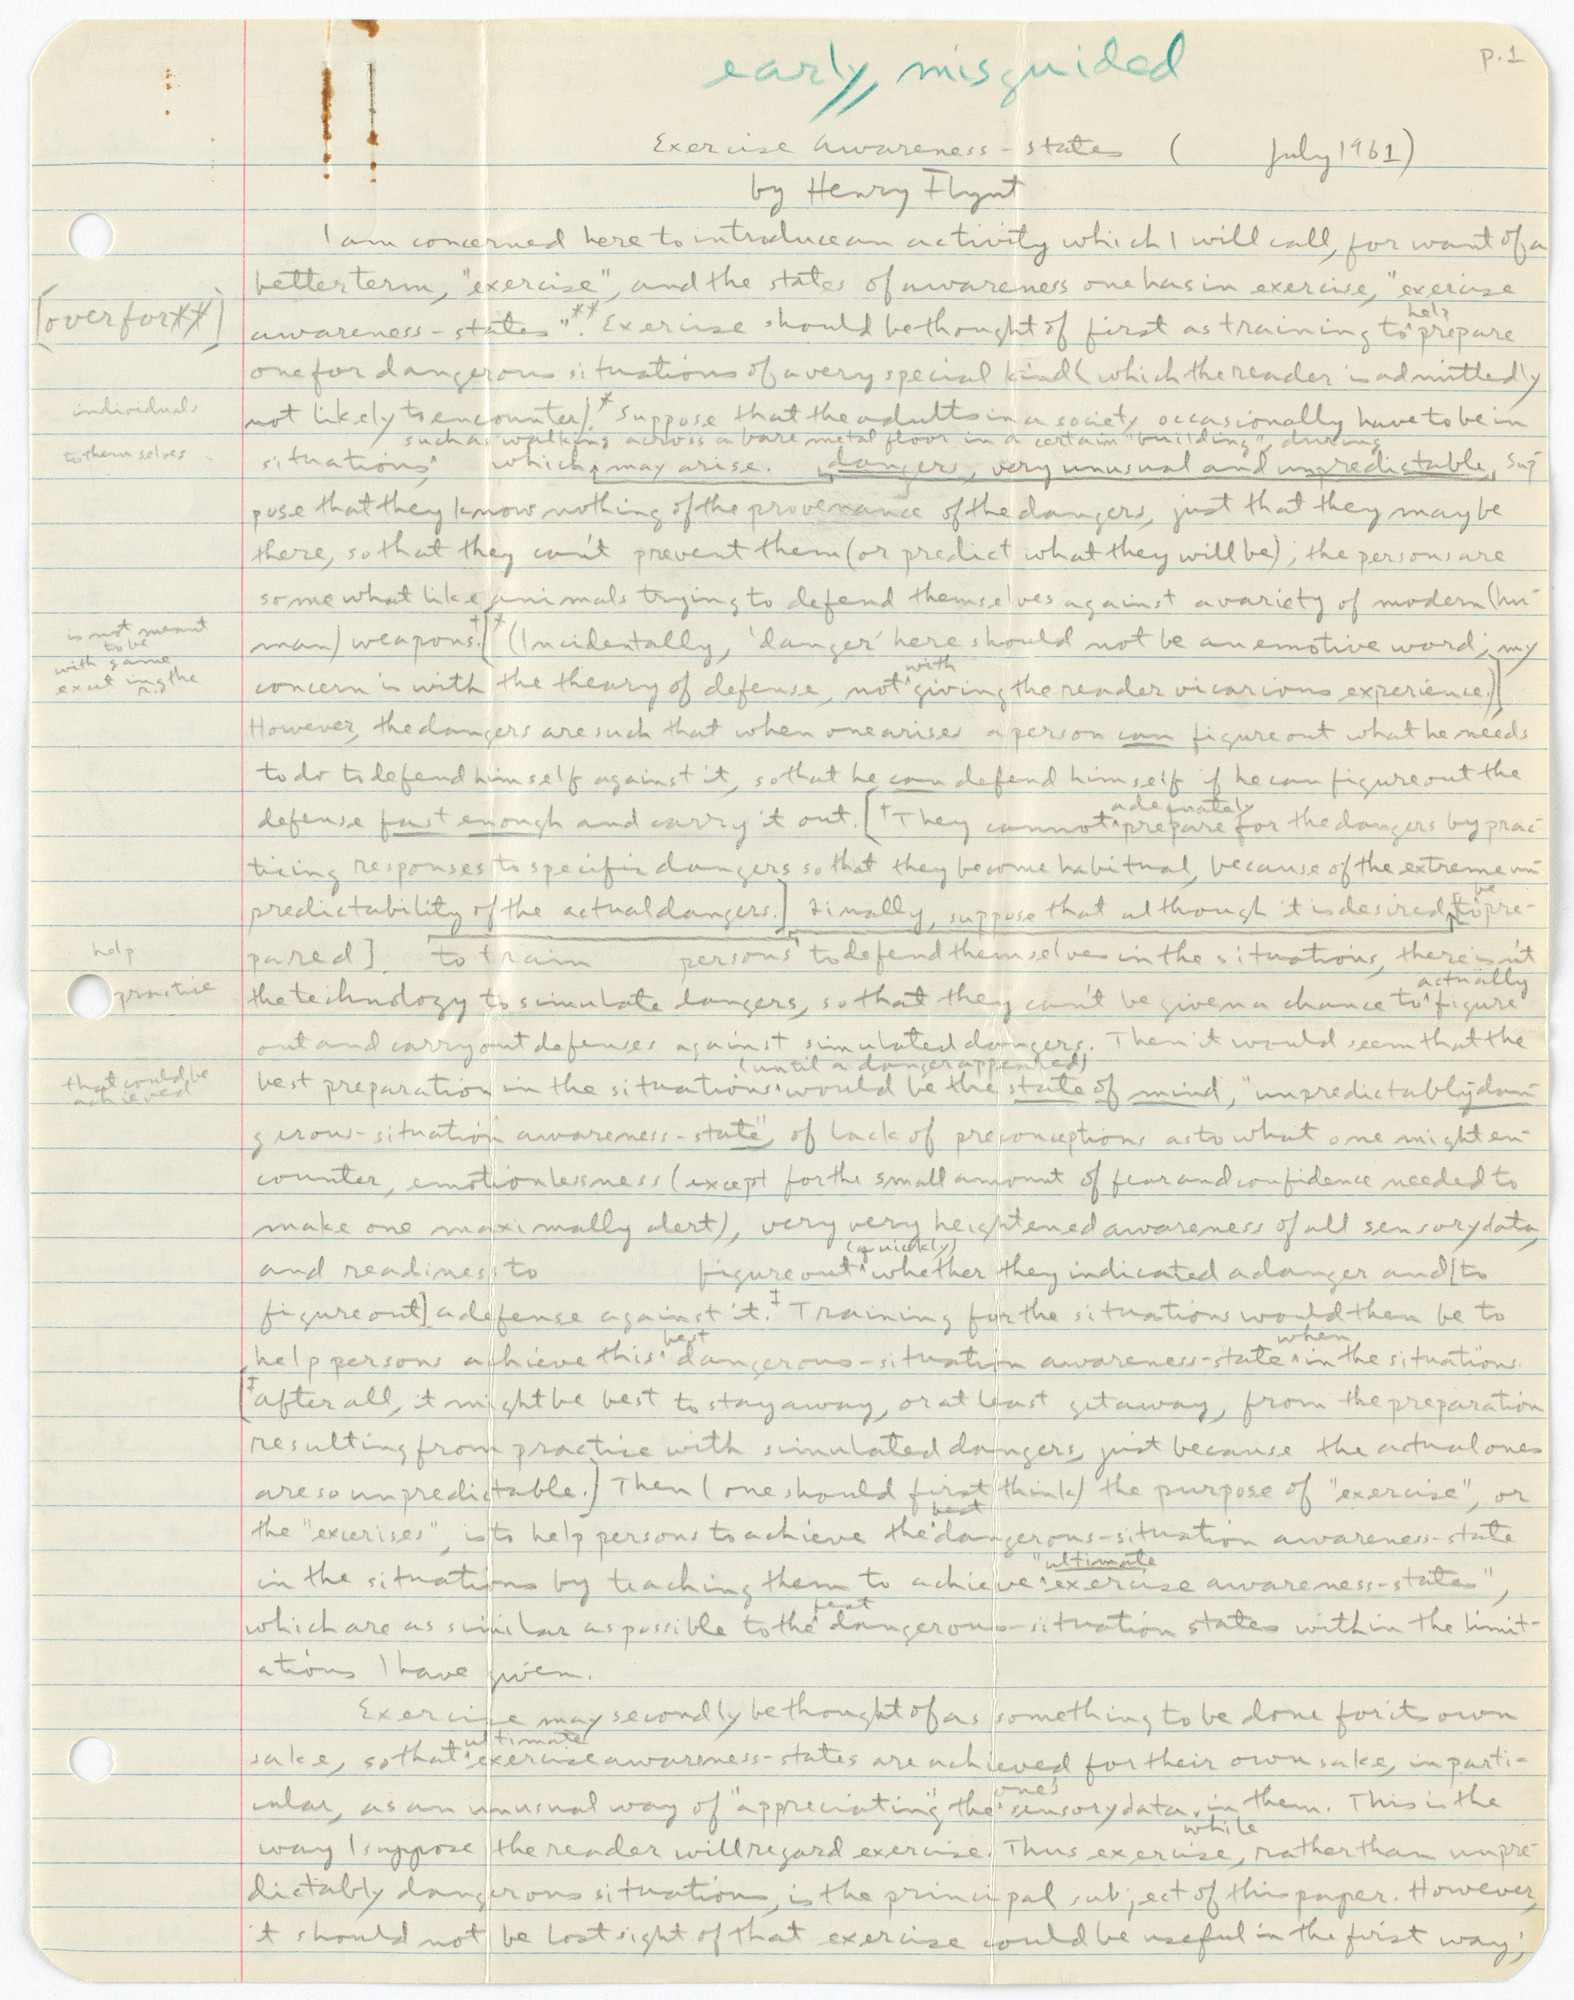 p.1
early, misguided
Exercise Awareness-states ( July 1961)
by Henry Flynt
I am concerned here to introduce an activity which I will call, for want of a
better term, "exercise", and the states of awareness one has in exercise, "exercise
[over for **]
awareness-states".** Exercise should be thought of first as training to ^help prepare
one for dangerous situations of a very special kind (which the reader is admittedly
individuals
not likely to encounter).* Suppose that the adults in a society occasionally have to be in
such as walking across a bare metal floor in a certain "building", during
to themselves
situations, which may arise. dangers, very unusual and unpredictable. Sup-
pose that they know nothing of the provenance of the dangers, just that they may be
there, so that they can't prevent them (or predict what they will be); the persons are
somewhat like animals trying to defend themselves against a variety of modern (hu-
is not meant
to be
with same
man) weapons.† [* (Incidentally, 'danger' here should not be an emotive word; my
with
concern is with the theory of defense, not ^ giving the reader vicarious experience.)]
However, the dangers are such that when one arises a person can figure out what he needs
to do to defend himself against it, so that he can defend himself if he can figure out the
adequately
defense fast enough and carry it out. [† They cannot ^ prepare for the dangers by prac-
ticing responses to specific dangers so that they become habitual, because of the extreme un-
be
predictability of the actual dangers.] Finally, suppose that although it is desired [to ^ pre-
help
pared] to train persons to defend themselves in the situations, there isn't
practice
actually
the technology to simulate dangers, so that they can't be given a chance to ^ figure
out and carry out defenses against simulated dangers. Then it would seem that the
that could be
achieved
(until a danger appeared)
best preparation in the situations ^ would be the state of mind, "unpredictably-dan-
gerous-situation awareness-state", of lack of preconceptions as to what one might en-
counter, emotionlessness (except for the small amount of fear and confidence needed to
make one maximally alert), very very heightened awareness of all sensory data,
(quickly)
and readiness to figure out ^ whether they indicated a danger and [to
figure out] a defense against it.‡ Training for the situations would then be to
best when
help persons achieve this ^ dangerous-situation awareness-state ^ in the situations.
[‡ after all, it might be best to stay away, or at least get away, from the preparation
resulting from practice with simulated dangers, just because the actual ones
are so unpredictable.] Then (one should first think) the purpose of "exercise", or
best
the "exercises", is to help persons to achieve the ^ dangerous-situation awareness-state
"ultimate
in the situations by teaching them to achieve ^ exercise awareness-states",
best
which are as similar as possible to the ^ dangerous-situation states within the limit-
ations I have given.
Exercise may secondly be thought of as something to be done for its own
ultimate
sake, so that ^ exercise awareness-states are achieved for their own sake, in parti-
one's
cular, as an unusual way of "appreciating" the ^ sensory data in them. This is the
while
way I suppose the reader will regard exercise. Thus exercise, rather than unpre-
dictably dangerous situations, is the principal subject of this paper. However,
it should not be lost sight of that exercise could be useful in the first way;